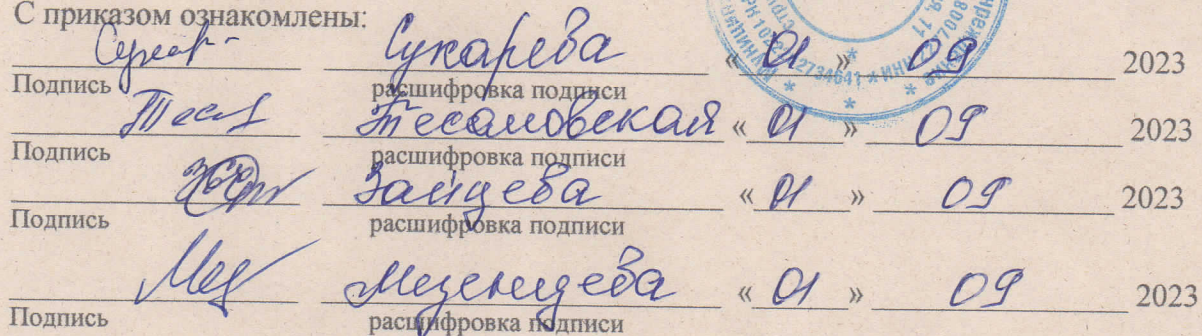 С приказом ознакомлены:
Сухар- Сухарева « 01 » 09 2023
Подпись расшифровка подписи
« 01 » 09 2023
Подпись расшифровка подписи
Зайцева « 01 » 09 2023
Подпись расшифровка подписи
Мез Мезенцева « 01 » 09 2023
Подпись расшифровка подписи